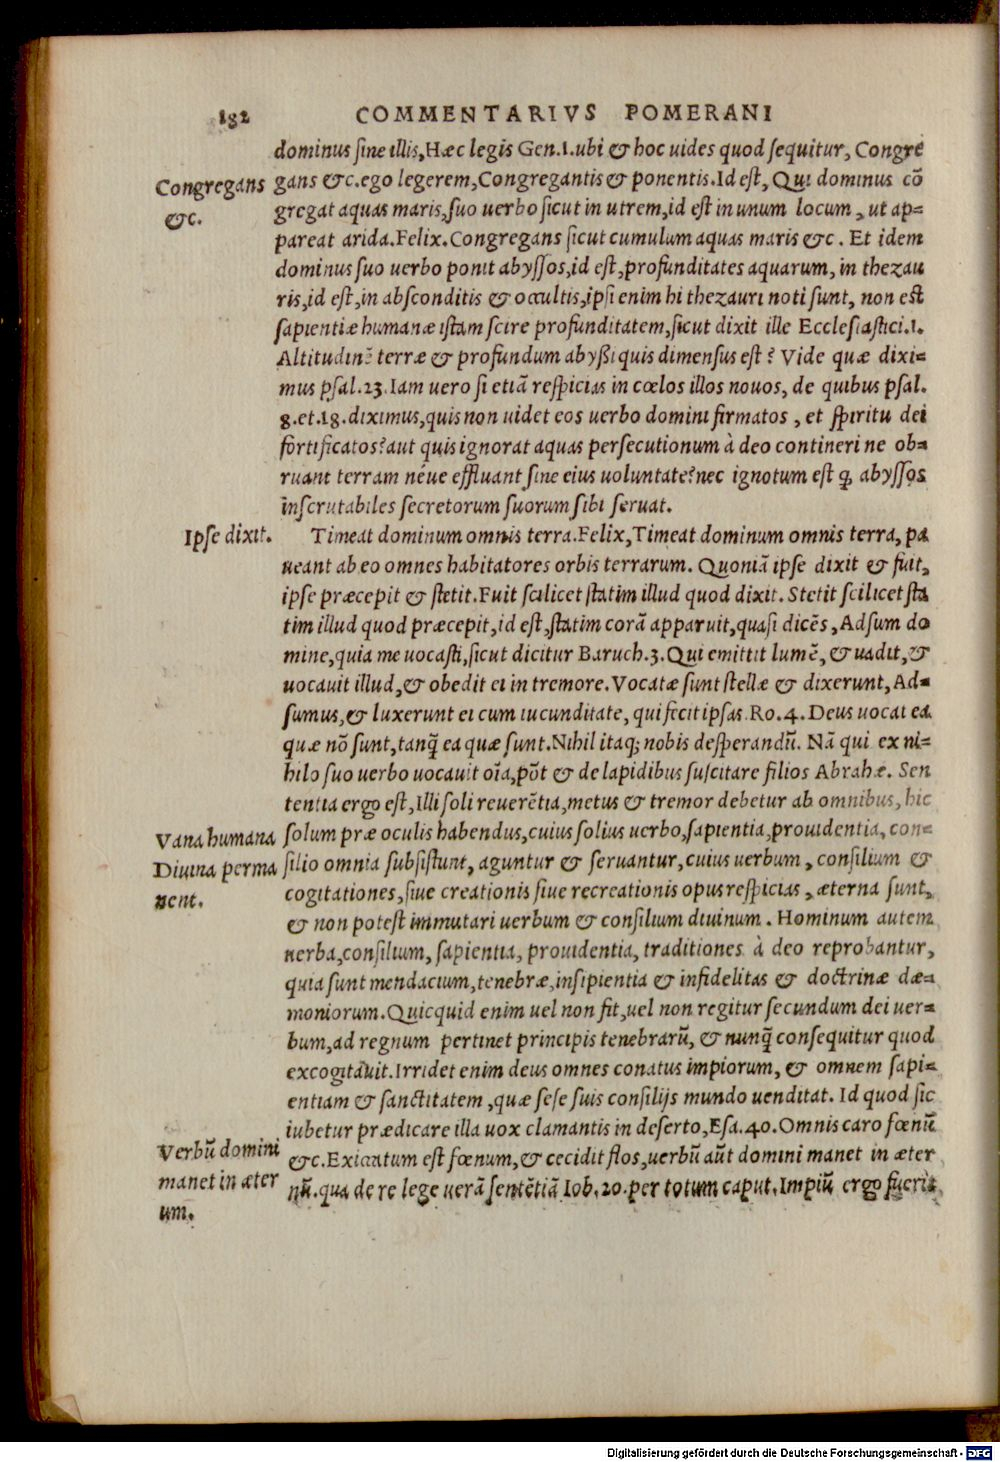 182 COMMENTARIVS POMERANI
dominus sine illis, Hæc legis Gen.1.ubi & hoc uides quod sequitur, Congre
Congregans
&c.
gans &c.ego legerem,Congregantis & ponentis.Id est, Qui dominus cõ
gregat aquas maris,suo uerbo sicut in utrem,id est in unum locum, ut ap=
pareat arida.Felix.Congregans sicut cumulum aquas maris &c. Et idem
dominus suo uerbo ponit abyssos,id est,profunditates aquarum, in thezau
ris,id est,in absconditis & occultis,ipsi enim hi thezauri noti sunt, non est
sapientiæ humanæ istam scire profunditatem,sicut dixit ille Ecclesiastici.1.
Altitudinẽ terræ & profundum abyssi quis dimensus est? Vide quæ dixi=
mus psal.23.Iam uero si etiã respicias in cœlos illos nouos, de quibus psal.
8.et.18.diximus,quis non uidet eos uerbo domini firmatos, et spiritu dei
fortificatos?aut quis ignorat aquas persecutionum à deo contineri ne ob=
ruant terram néue effluant sine eius uoluntate?nec ignotum est ꝙ abyssos
inscrutabiles secretorum suorum sibi seruat.
Ipse dixit.
Timeat dominum omnis terra.Felix,Timeat dominum omnis terra, pa
ueant ab eo omnes habitatores orbis terrarum. Quoniã ipse dixit & fuit,
ipse præcepit & stetit.Fuit scilicet statim illud quod dixit. Stetit scilicet sta
tim illud quod præcepit,id est,statim corã apparuit,quasi dicẽs, Adsum do
mine,quia me uocasti,sicut dicitur Baruch.3.Qui emittit lumẽ, & uadit, &
uocauit illud, & obedit ei in tremore.Vocatæ sunt stellæ & dixerunt, Ad=
sumus, & luxerunt ei cum iucunditate, qui fecit ipsas.Ro.4.Deus uocat ea
quæ nõ sunt,tanq̃ ea quæ sunt.Nihil itaq; nobis desperandũ. Nã qui ex ni=
hilo suo uerbo uocauit oĩa,põt & de lapidibus suscitare filios Abrahæ. Sen
tentia ergo est,Illi soli reuerẽtia,metus & tremor debetur ab omnibus, hic
Vana humana
Diuina perma
nent.
solum præ oculis habendus,cuius solius uerbo,sapientia,prouidentia, con=
silio omnia subsistunt, aguntur & seruantur,cuius uerbum, consilium &
cogitationes,siue creationis siue recreationis opus respicias, æterna sunt,
& non potest immutari uerbum & consilium diuinum. Hominum autem
uerba,consilium, sapientia, prouidentia, traditiones à deo reprobantur,
quia sunt mendacium,tenebræ,insipientia & infidelitas & doctrinæ dæ=
moniorum.Quicquid enim uel non fit,uel non regitur secundum dei uer=
bum,ad regnum pertinet principis tenebrarũ, & nunq̃ consequitur quod
excogitauit.Irridet enim deus omnes conatus impiorum, & omnem sapi=
entiam & sanctitatem,quæ sese suis consilijs mundo uenditat. Id quod sic
iubetur prædicare illa uox clamantis in deserto,Esa.40.Omnis caro fœnũ
Verbũ domini
manet in æter
um.
&c.Exiccatum est fœnum, & cecidit flos,uerbũ aũt domini manet in æter
nũ.qua de re lege uerã sentẽtiã Iob.20.per totum caput.Impiũ ergo fuerit
Digitalisierung gefördert durch die Deutsche Forschungsgemeinschaft - DFG